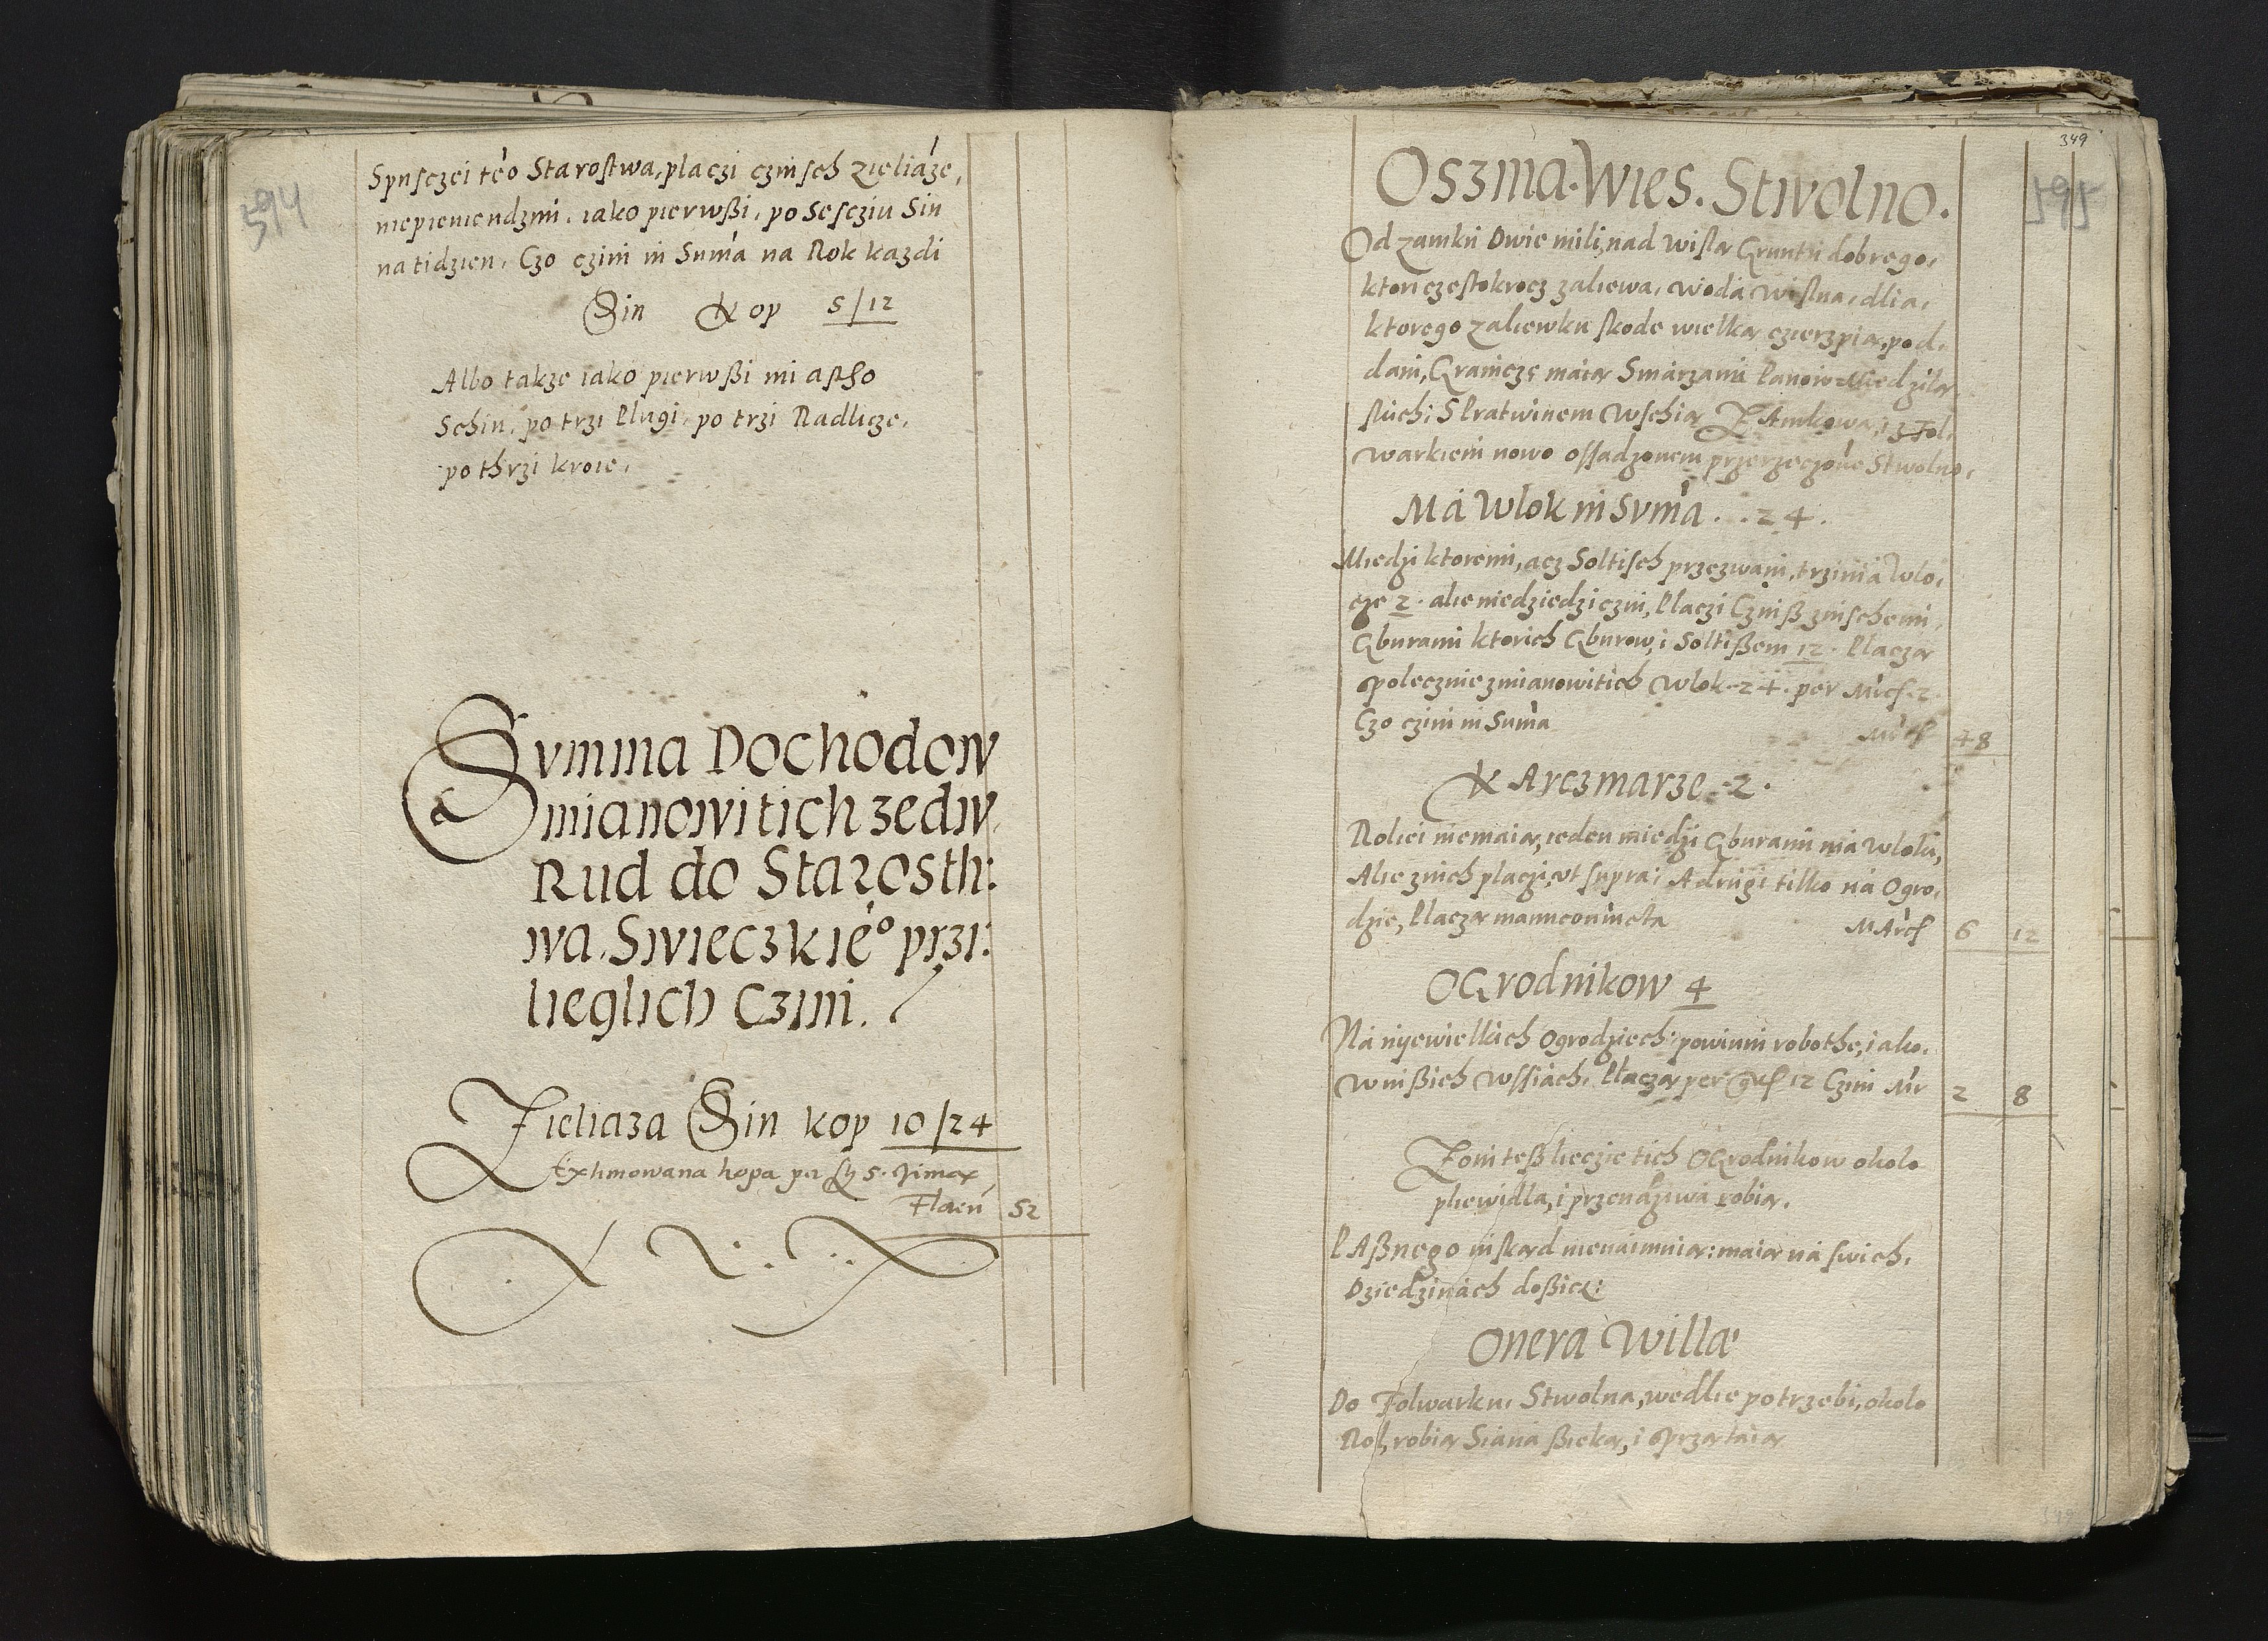 594
Spusczei te̊o Starostwa, placzi czinsch zieliaze,
niepieniendzmi, iako pierwßi, po Sescziu Sin
na tidzien, Czo czini in Suma na Rok kazdi
Sin Kop 5/12
Albo takze iako pierwßi miasto
Schin, po trzi Plugi, po trzi Radlicze,
po thrzi kroie.
Summa Dochodow
mianowitich zedw
Rud do Starosth:
wa. Swieczkie̊o przi:
lieglich Czini.
Zieliaza Sin kop 10/24
Extimowana kopa per 5.
Floren 52
349
595
Oszma. Wies. Stwolno.
Od zamku Dwie mili, nad Wislą Gruntu dobrego,
ktori czestokrocz zaliewa, woda Wislna, dlia,
ktorego zaliewku skode wielką czierzpią, pod,
dani, Granicze maią Smarzami Panow
skich; Slratwinem Wschią ZAmkową, i z Fol,
warkiem nowo ossadzonem przerzeczone Stwolno,
Ma Wlok in Suma . . 24.
Miedzi ktoremi, acz Soltisch przezwani, trzima Wlo,
cze 2. alie niedziedziczni, Placzi Czinß zinschemi,
Gburami ktorich Gburow, i Soltißem 12. Placzą
spolecznie zmianowitich Wlok 24. per Mrcs. 2.
Czo czini in Suma Mrcs 48
KArczmarze 2.
Roliei niemaią, ieden miedzi Gburami ma Wloki,
Alie znich placzi, ut supra; A drugi tilko na Ogro,
dzie, Placzą Marcs 6 12
OGrodnikow 4
Na niewielkich Ogrodziech powinni robothe, iako,
W inßich Wssiach, Placzą per gs 12 Czini Mr 2 8
Zon teß lieczie tich OGrodnikow okolo
pliewidla, i przendziwa robią.
lAßnego niskąd nienaimuią: maią na swich,
Dziedzinach dosicz:
Onera Willæ
Do Folwarku, Stwolna, wedlie potrzebi, okolo
Rol, robią Siana sieką, i sprzątaią